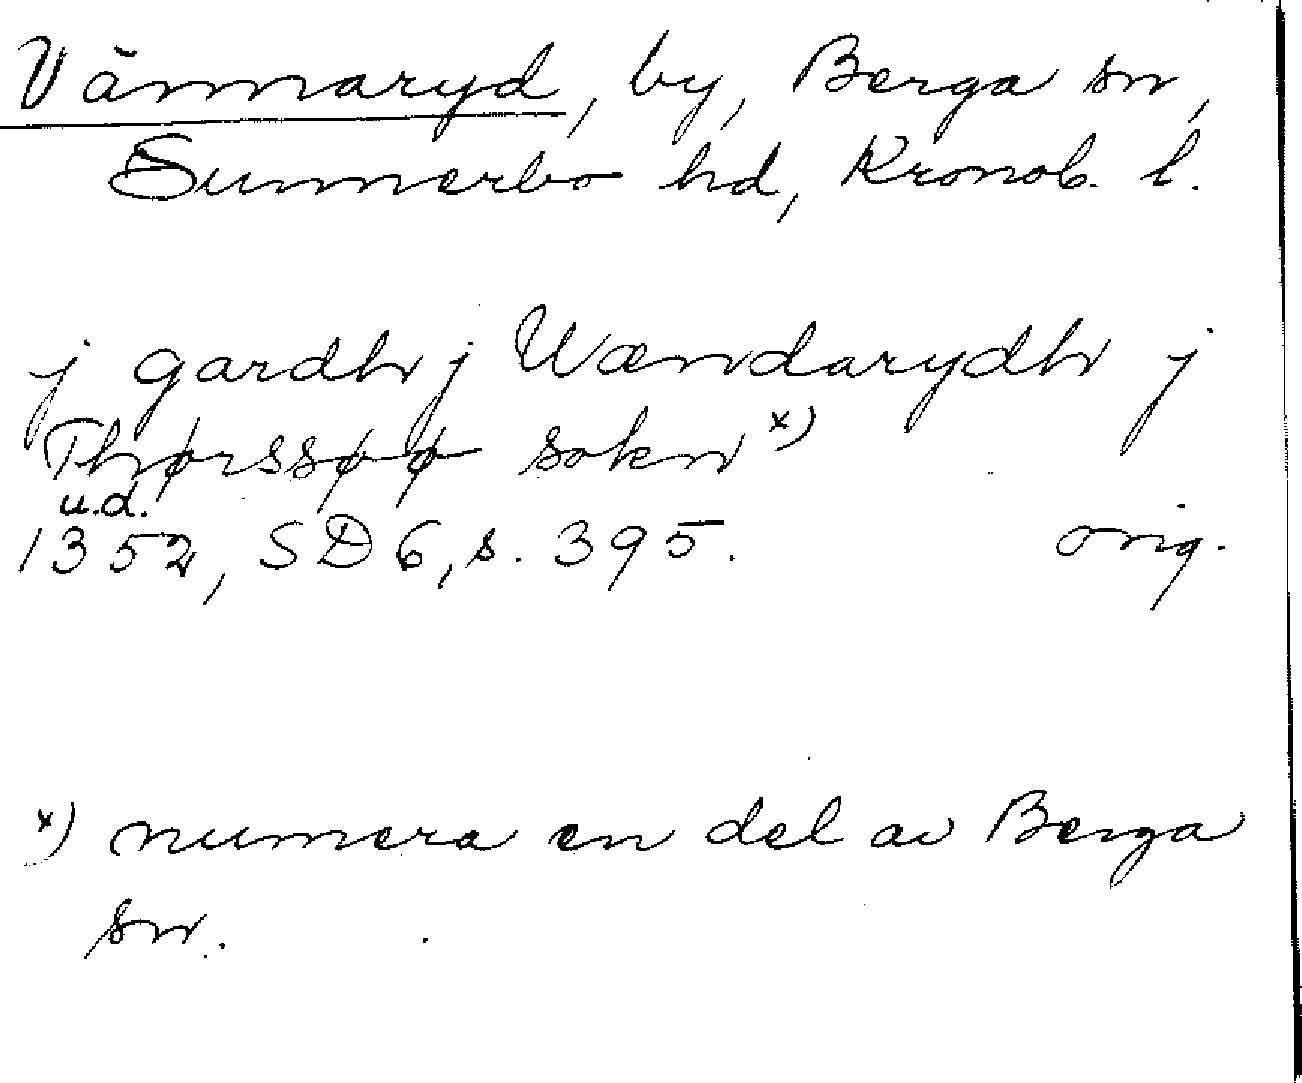 Vännaryd, by, Berga sn,
Sunnerbo hd, Kronob. l.
j gardh j Wændarydh j
Thørssøø sokn x)
u.d.
1352, SD 6, s. 395. orig.
x) numera en del av Berga
sn.